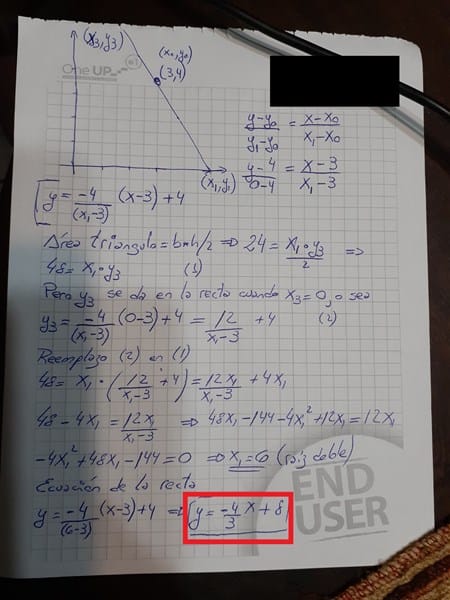 (x3,y3)
One UP
(x0,y0)
(3,4)
(x1,y1)
y-y0/y1-y0 = x-x0/x1-x0
y-4/0-4 = x-3/x1-3
y = -4/(x1-3) (x-3)+4
Área triángulo = b*h/2 ⇒ 24 = x1·y3/2 ⇒
48 = x1·y3 (1)
Pero y3 se da en la recta cuando x3=0, o sea
y3 = -4/(x1-3) (0-3)+4 = 12/x1-3 +4 (2)
Reemplazo (2) en (1)
48 = x1·(12/x1-3 +4) = 12x1/x1-3 + 4x1
48-4x1 = 12x1/x1-3 ⇒ 48x1-144-4x1²+12x1=12x1
-4x1²+48x1-144=0 ⇒ x1=6 (raiz doble)
Ecuación de la recta
y = -4/(6-3) (x-3)+4 ⇒ y = -4/3 x+8
END
USER